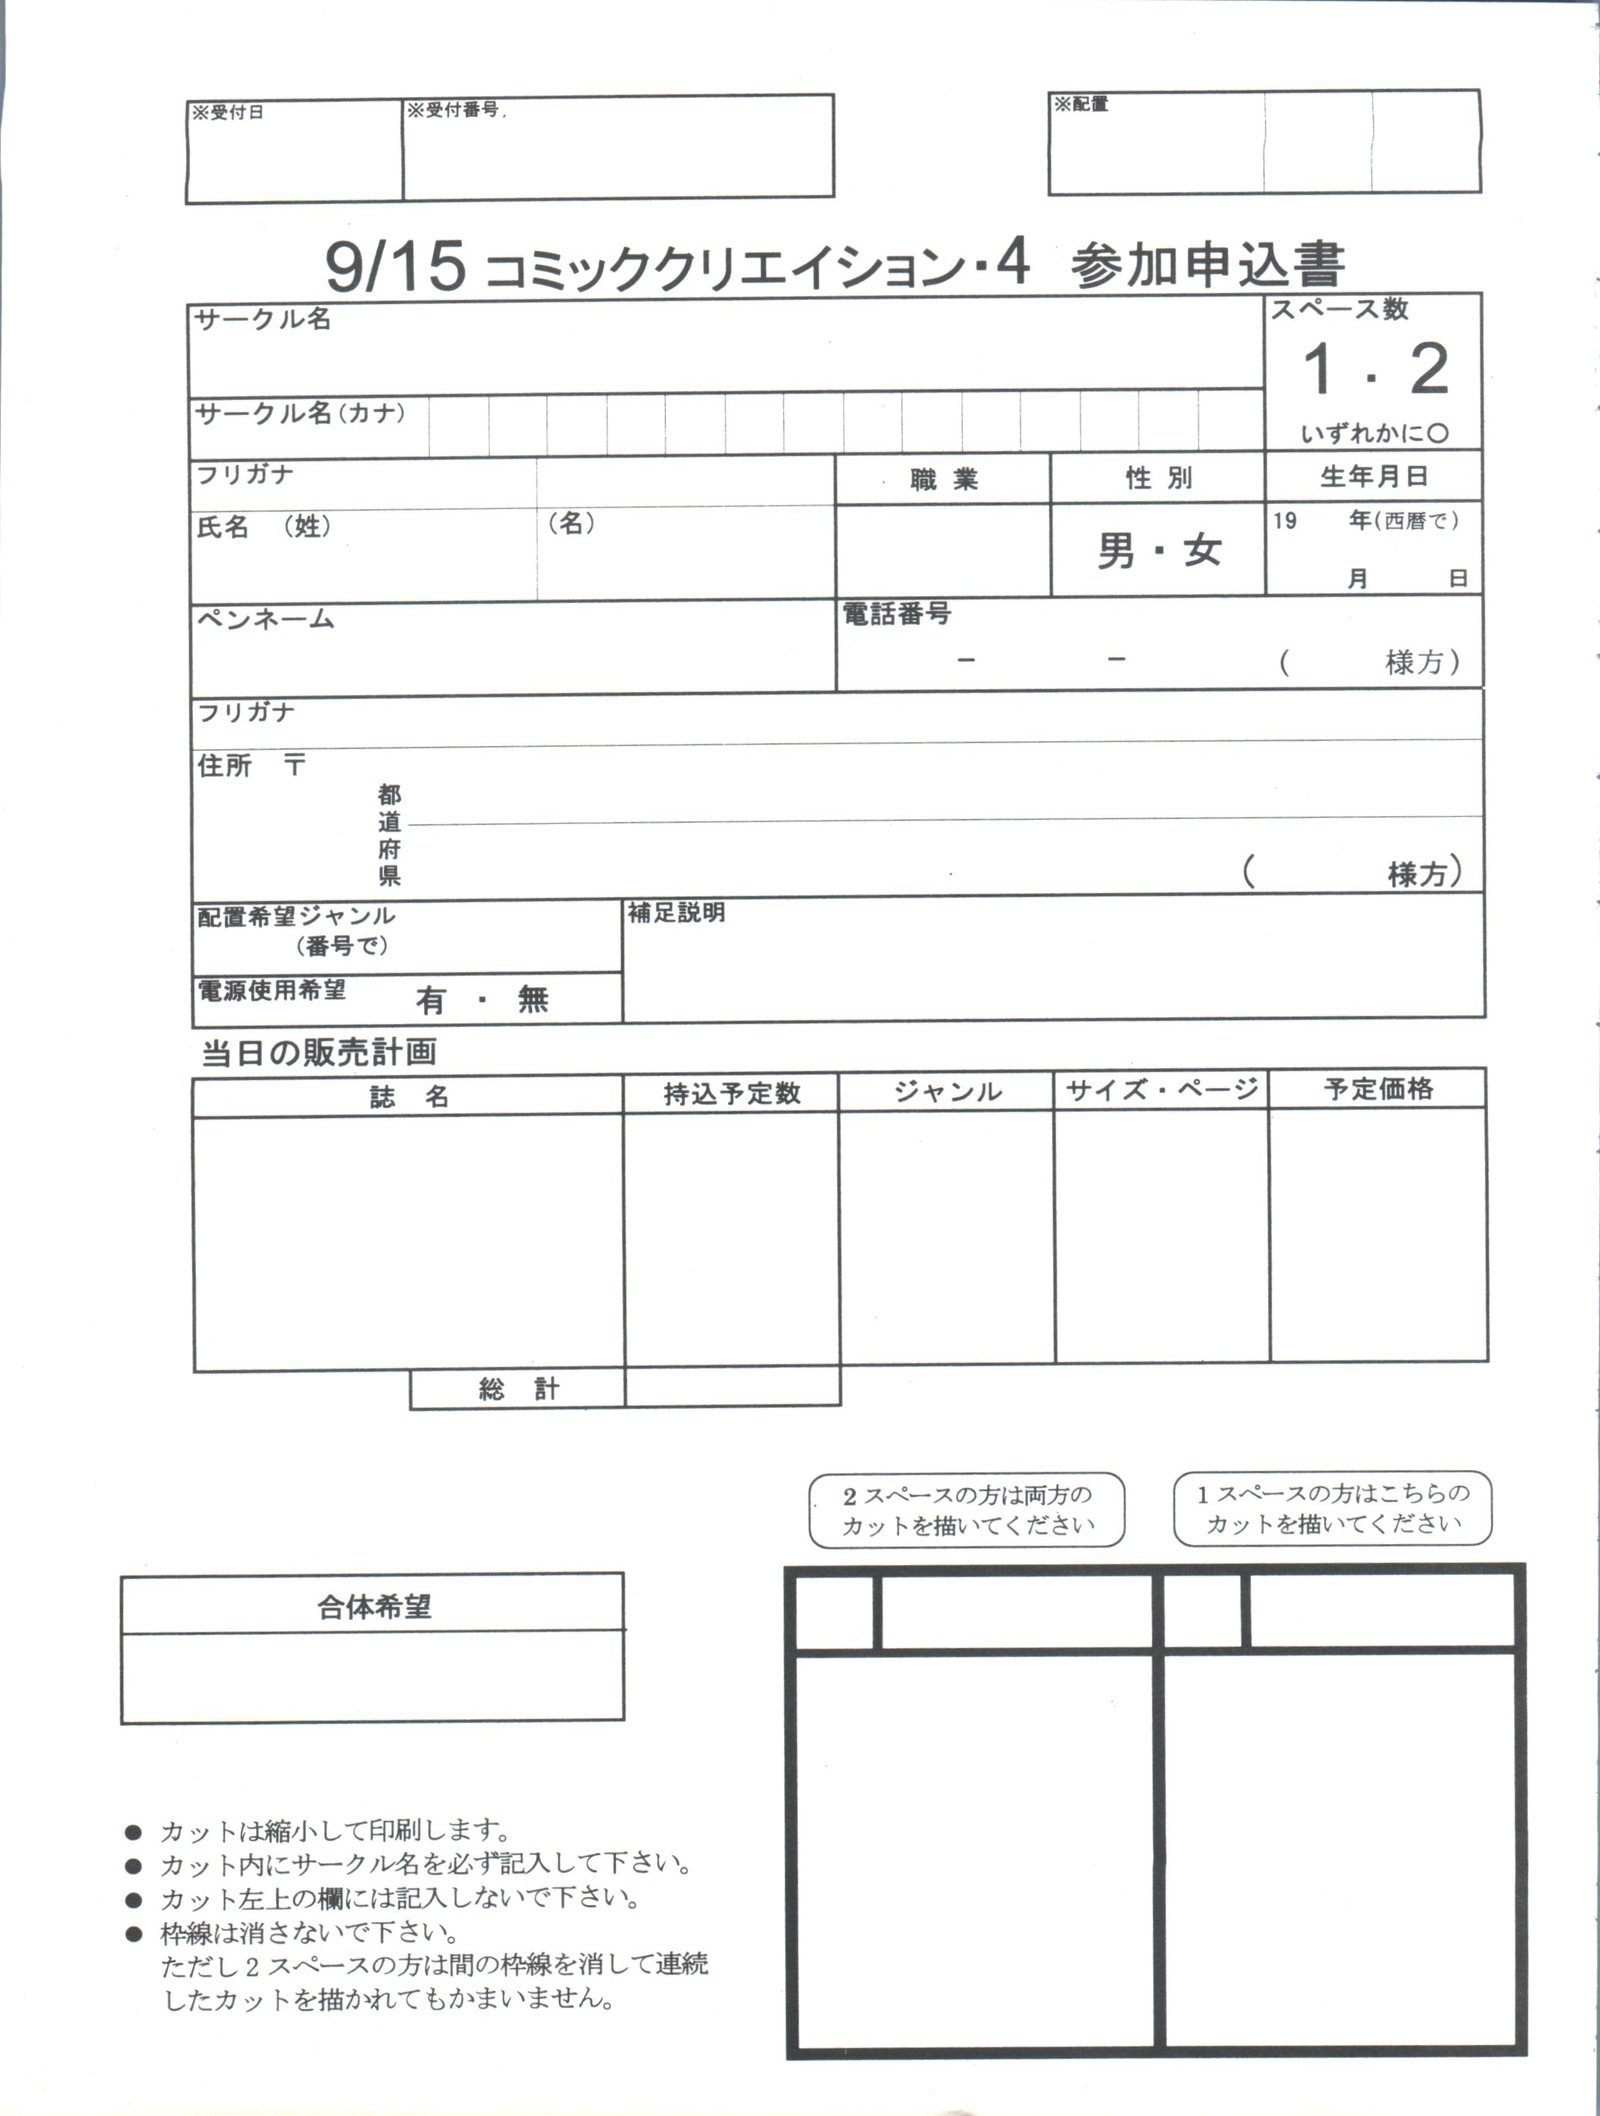 ※受付日
※受付番号
※配置
9/15 コミッククリエイション・4 参加申込書
サークル名
スペース数
1・2
いずれかに○
サークル名(カナ)
フリガナ
職業
性別
生年月日
氏名 (姓)
(名)
男・女
19 年(西暦で)
月 日
ペンネーム
電話番号
－ － ( 様方)
フリガナ
住所 〒
都
道
府
県
( 様方)
配置希望ジャンル
(番号で)
補足説明
電源使用希望 有・無
当日の販売計画
誌名
持込予定数
ジャンル
サイズ・ページ
予定価格
総計
2スペースの方は両方の
カットを描いてください
1スペースの方はこちらの
カットを描いてください
合体希望
● カットは縮小して印刷します。
● カット内にサークル名を必ず記入して下さい。
● カット左上の欄には記入しないで下さい。
● 枠線は消さないで下さい。
ただし2スペースの方は間の枠線を消して連続
したカットを描かれてもかまいません。